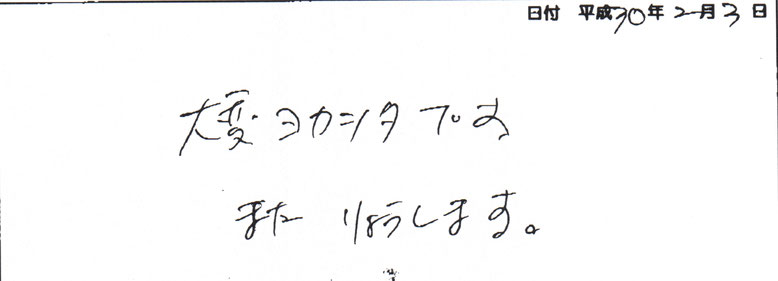 日付 平成30年2月3日
大変ヨカッタデす
また りようします。